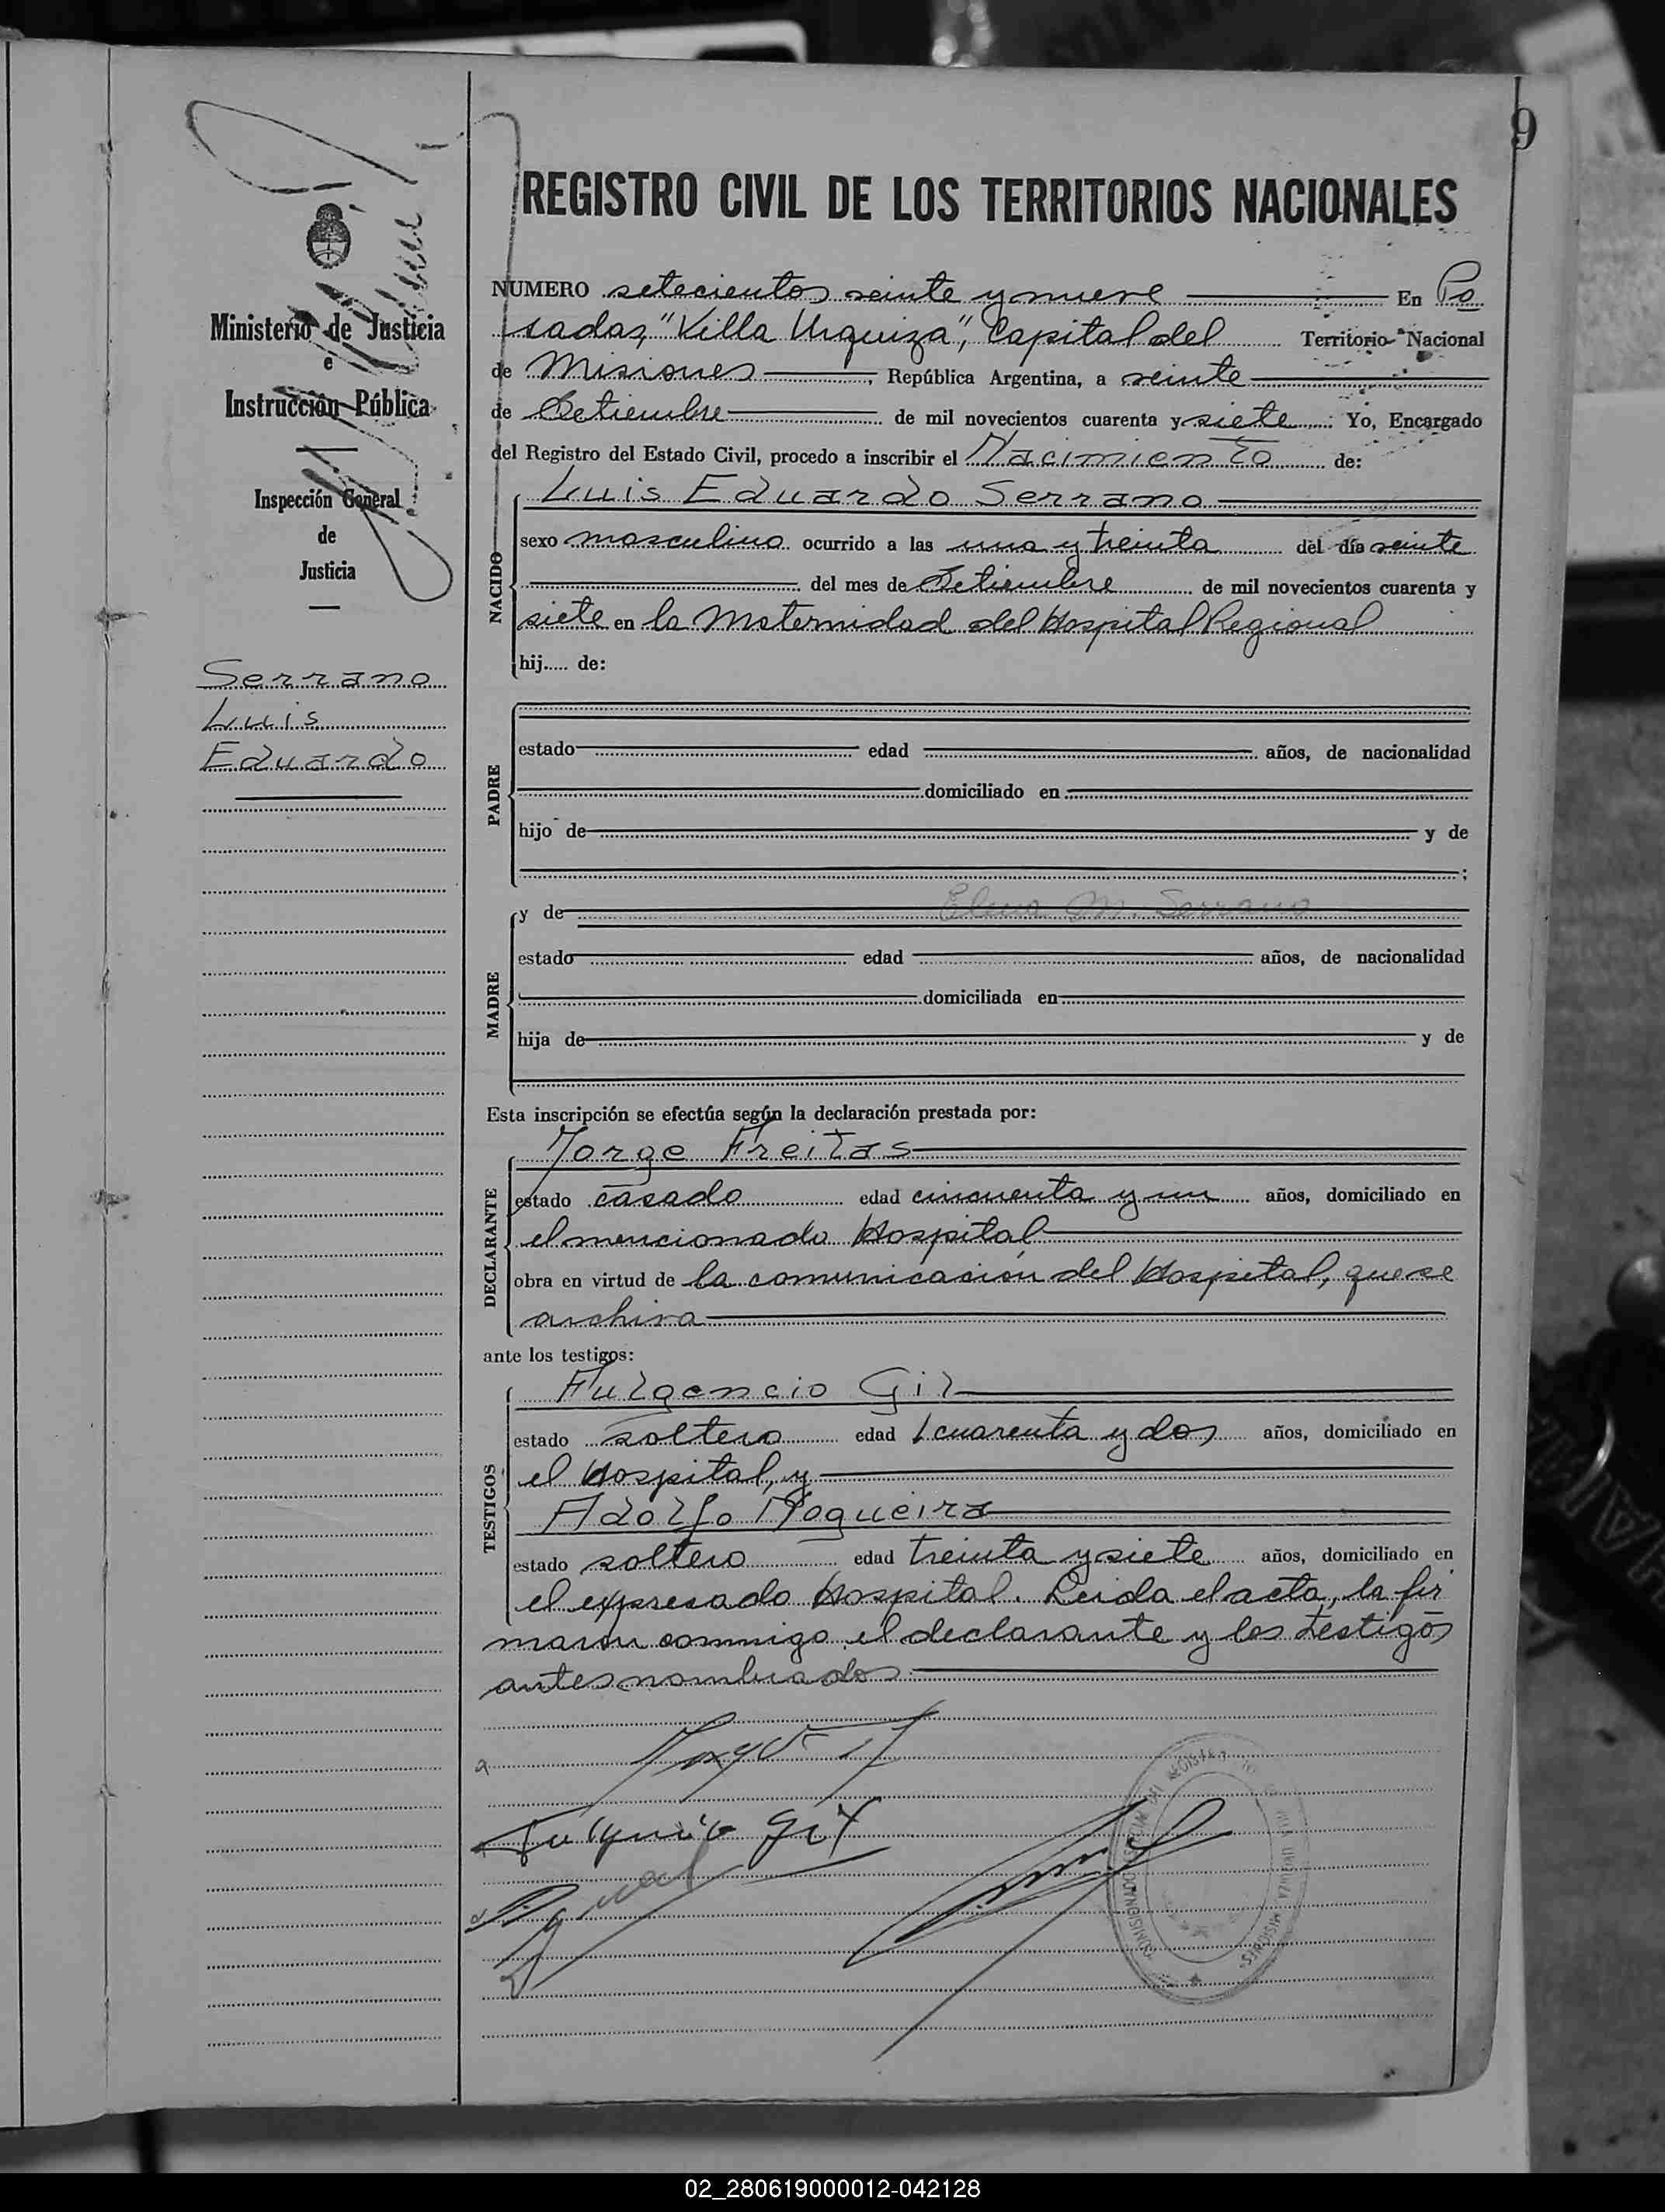 9
REGISTRO CIVIL DE LOS TERRITORIOS NACIONALES
Ministerio de Justicia
e
Instrucción Pública
Inspección General
de
Justicia
Serrano
Luis
Eduardo
NUMERO setecientos veinte y nueve En Po
sadas, "Villa Urquiza", Capital del Territorio Nacional
de Misiones, República Argentina, a veinte
de Setiembre de mil novecientos cuarenta y siete. Yo, Encargado
del Registro del Estado Civil, procedo a inscribir el Nacimiento de:
NACIDO
Luis Eduardo Serrano
sexo masculino ocurrido a las una y treinta del día veinte
del mes de Setiembre de mil novecientos cuarenta y
siete en la Maternidad del Hospital Regional
hij..... de:
PADRE
estado edad años, de nacionalidad
domiciliado en
hijo de y de
;
MADRE
y de Elena M. Serrano
estado edad años, de nacionalidad
domiciliada en
hija de y de
Esta inscripción se efectúa según la declaración prestada por:
DECLARANTE
Jorge Freitas
estado casado edad cincuenta y un años, domiciliado en
el mencionado Hospital
obra en virtud de la comunicación del Hospital, que se
archiva
ante los testigos:
TESTIGOS
Fulgencio Gil
estado soltero edad cuarenta y dos años, domiciliado en
el Hospital, y
Adolfo Nogueira
estado soltero edad treinta y siete años, domiciliado en
el expresado Hospital. Leida el acta, la fir
maron conmigo el declarante y los testigos
antes nombrados.
Fulgencio Gil
VILLA URQUIZA MISIONES
02_280619000012-042128